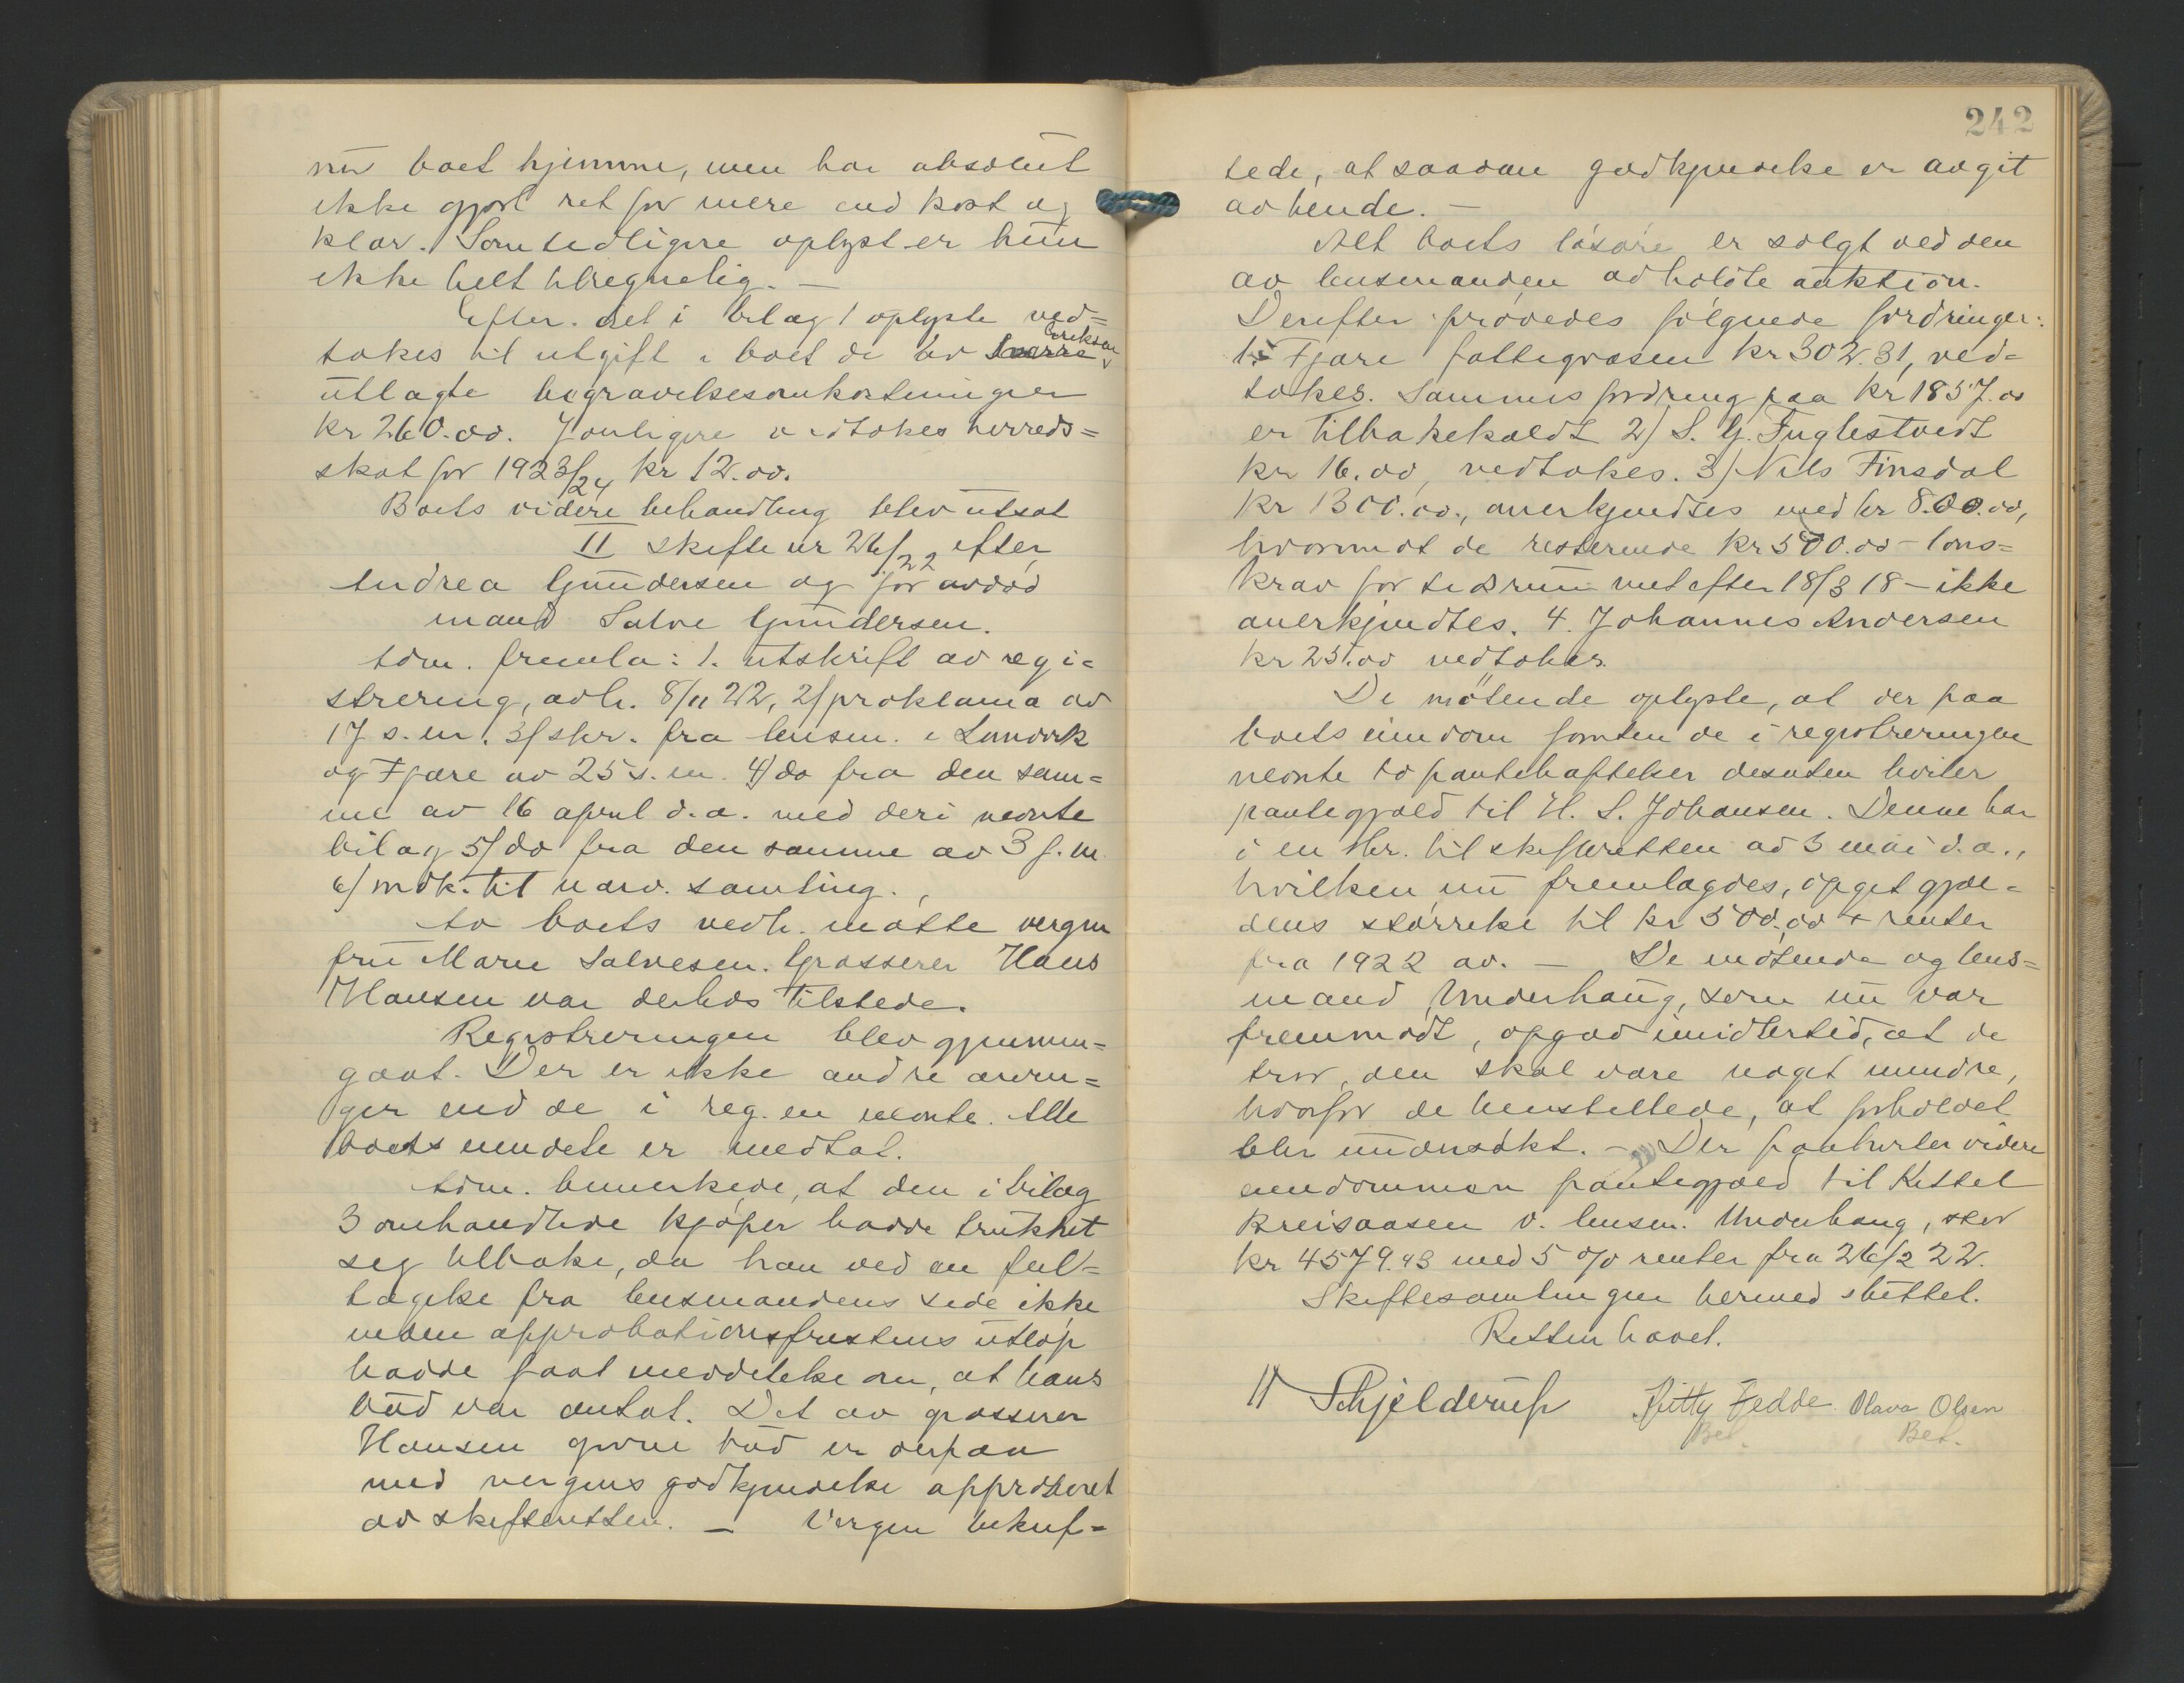 nu boet hjemme, men har absolut
ikke gjort ret for mere end kost og
klær. Som tidligere oplyst er hun
ikke helt tilregnelig. —
Efter det i bilag 1 oplyste ved=
tokes til utgift i boet de av Sverre Eriksen
utlagte begravelsesomkostninger
kr 260.00. Yderligere vedtokes herreds=
skat for 1923/24 kr 12.00.
Boets videre behandling blev utsat
II Skifte nr 26/22 efter
Andrea Gundersen og før avdød
mand Salve Gundersen.
Adm. fremla: 1. utskrift av regi=
strering, avh. 8/11 22, 2/ proklama av
17 s.m. 3/ skr. fra lensm. i Landvik
og Fjære av 25 s.m. 4/ do fra den sam=
me av 16 april d.a. med deri nævnte
bilag 5/ do fra den samme av 3 f.m.
6/ indk. til nærv. samling.
Paa boets vedk. møtte vergen
fru Marie Salvesen. Grosserer Hans
Hansen var derhos tilstede.
Registreringen blev gjennem=
gaat. Der er ikke andre arvin=
ger end de i reg.en nævnte. Alle
boets eiendele er medtat.
Adm. bemerkede, at den i bilag
3 omhandlede kjøper hadde trukket
seg tilbake, da han ved en feil=
tagelse fra lensmandens side ikke
inden approbationsfristens utløp
hadde faat meddelelse om, at hans
bud var antat. Det av grosserer
Hansen givne bud er derpaa
med vergens godkjendelse approberet
av skifteretten. — Vergen bekref=
242
tede, at saadan godkjendelse er avgit
av hende. —
Alt boets løsøre er solgt ved den
av lensmanden avholdte auktion.
Derefter prøvedes følgende fordringer:
1. Fjære fattigvæsen kr 302.31, ved=
tokes. Sammes fordring paa kr 1857.00
er tilbakekaldt 2/ S. G. Fuglestvedt
kr 16.00, vedtokes. 3/ Nils Finsdal
kr 1300.00, anerkjendtes med kr 800.00,
hvorimot de resterende kr 500.00 – løns=
krav for tidsrummet efter 18/3 18 – ikke
anerkjendtes. 4. Johannes Andersen
kr 25.00 vedtokes.
De møtende oplyste, at der paa
boets eiendom foruten de i registreringen
nævnte to pantehæftelser desuten hviler
pantegjæld til H. S. Johansen. Denne har
i en skr. til skifteretten av 3 mai d.a.,
hvilken nu fremlagdes, opgit gjæl=
dens størrelse til kr 500.00 + renter
fra 1922 av. — De møtende og lens=
mand Underhaug, som nu var
fremmødt, opgav imidlertid, at de
tror, den skal være noget mindre,
hvorfor de henstillede, at forholdet
blir undersøkt. — Der paahviler videre
eiendommen pantegjæld til Kittel
Kreisaasen v. lensm. Underhaug, stor
kr 4579.93 med 5 % renter fra 26/2 22.
Skiftesamlingen hermed sluttet.
Retten hævet.
Schjelderup Kitty Fedde Olava Olsen
Bet. Bet.